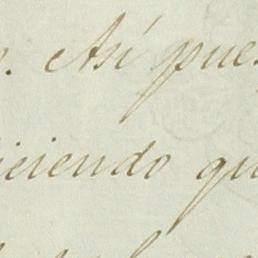 . Así pues
iciendo qu